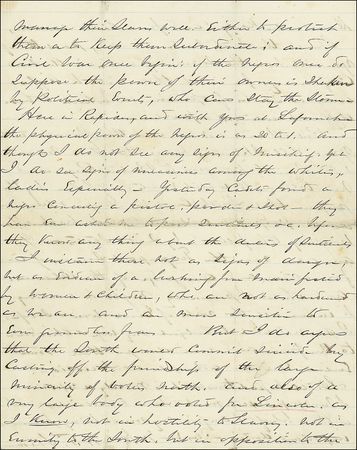 manage their Slaves well. Either to protect
them or to Keep them Subordinate; and if
Civil War once begin: if the negros once
Suppose the power of their owners is Shaken
by Political Events, who can Stay the Storm
Here in Rapides, and with you at Lafourche
the physical power of the negros is as 20 to 1. and
though I do not see any signs of Mischief. yet
I do see signs of uneasiness among the whites,
ladies Especially - Yesterday Cadets found a
negro concealing a pistol, powder & Shot they
have asked me to post Sentinels &c. before
they know any thing about the duties of Sentinels
I mention these not as signs of danger,
but as Evidence of a lurking fear manifested
by women & children, who are not as hardened
as we are. and are more sensitive to
Even groundless fears But I do aver
that the South would commit Suicide by
Casting off the friendship of the large
Minority of votes North. and also of a
very large body who voted for Lincoln, as
I Know, not in hostility to Slavery. not in
Enmity to the South. but in opposition to the